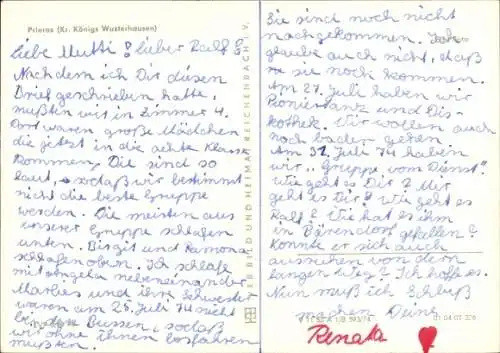 Prieros (Kr. Königs Wusterhausen)
Liebe Mutti! Lieber Ralf!
Nach dem ich Dir diesen
Brief geschrieben hatte,
mußten wir in Zimmer 4.
Dort waren große Mädchen
die jetzt in die achte Klasse
kommen. Die sind so
laut, sodaß wir bestimmt
nicht die beste Gruppe
werden. Die meisten aus
unserer Gruppe schlafen
unten. Birgit und Ramona
schlafen oben. Ich schlafe
mit Angela nebeneinander
Marlies und ihre Schwester
waren am 25. Juli 74 nicht
bei den Bussen, sodaß
wir ohne ihnen losfahren
mußten.
VEB BILD UND HEIMAT REICHENBACH I. V.
Sie sind noch nicht
nachgekommen. Ich
glaube auch nicht, daß
sie noch kommen.
Am 27. Juli haben wir
Pioniertanz und Dis-
kothek. Wir wollen auch
noch baden gehen.
Am 31. Juli 74 haben
wir "Gruppe vom Dienst".
Wie geht es Dir? Mir
geht es Dir? Wie geht es
Ralf? Wie hat es ihm
in Bärendorf gefallen?
Konnte er sich auch
ausruhen von dem
langen Weg? Ich hoffe es.
Nun muß ich Schluß
machen Deine
Renata